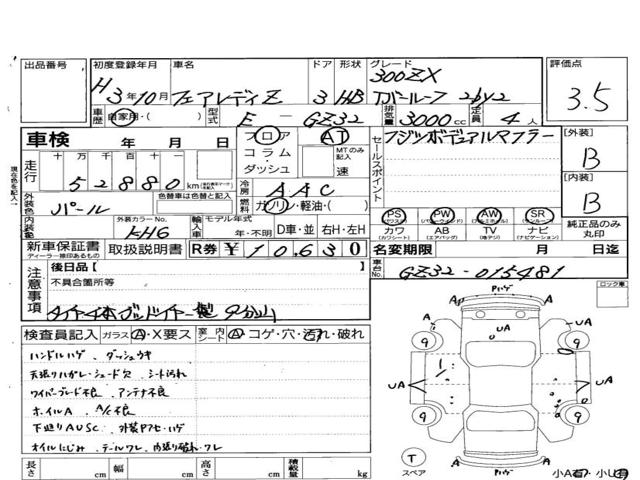 出品番号 初度登録年月 車名 ドア 形状 グレード 評価点
H3年10月 フェアレディZ 3 HB 300ZX Tバールーフ 2by2 3.5
車歴 自家用・( ) 型式 E-GZ32 排気量 3000cc 定員 4人
車検 年 月 日
フロア コラム・ダッシュ AT MTのみ記入 速
セールスポイント フジツボデュアルマフラー
[外装] B
走行 十万千百十一
52880 km
冷房 AAC
[内装] B
外装色 パール 色替車は色替と記入
燃料 ガソリン・軽油・( )
PS PW AW SR
カワ AB TV ナビ
純正品のみ丸印
内装色 外装カラーNo. KH6 輸入車 モデル年式 年・不明 D車・並 右H・左H
新車保証書 取扱説明書 R券 ¥10,630
ディーラー捺印あるもの
名変期限 月 日迄
車台No. GZ32-015481
現在色を記入
注意事項 後日品【 】
不具合箇所等
タイヤ4本グッドイヤー製 9分山
ロック車
検査員記入 ガラス A・X要ス 室内 シート A・コゲ・穴・汚れ・破れ
ハンドルハゲ、ダッシュウキ
天張りハガレ・シェード欠 シート汚れ
ワイパーブレード不良、アンテナ不良
ホイルA、A/C不良
下廻りAUSC、外装
オイルにじみ、テールワレ、内張り破れ・ワレ
長さ cm 幅 cm 高さ cm 積載量 kg
Pハゲ
A A
UA
A UA
9 9
UA UA
9 9
A A
Pハゲ
T
スペア
小A有・小U有